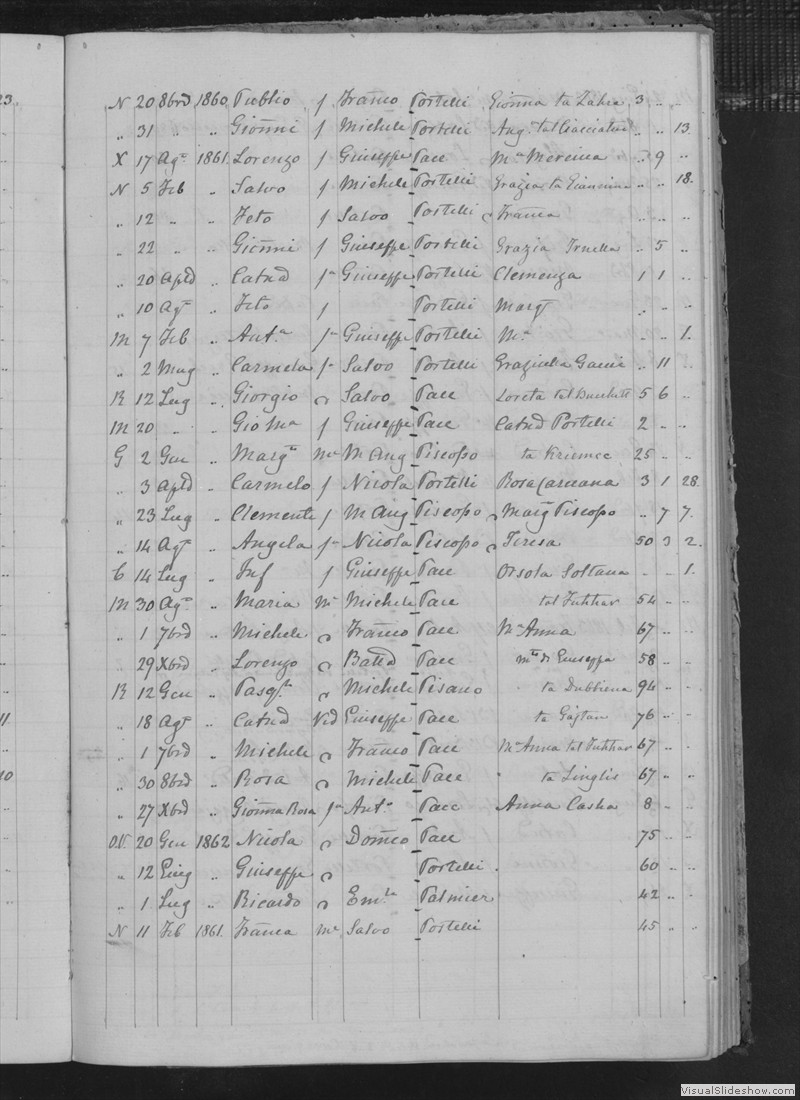 23.
N 20 8brd 1860 Publio f Franco Portelli Gionna ta Zahra 3 .. ..
" 31 " " Gionni f Michele Portelli Ang. tal .. .. 13.
X 17 Agto 1861 Lorenzo f Giuseppe Pace Ma Mercieca .. 9 ..
N 5 Feb .. Salvo f Michele Portelli Grazia ta .. .. 18.
" 12 " .. Zeto f Salvo Portelli Franca .. .. ..
" 22 " .. Gionni f Giuseppe Portelli Grazia .. 5 ..
" 20 Apld .. Catnd fa Giuseppe Portelli Clemenza 1 1 ..
" 10 Agt .. Zeto f Portelli Margt .. .. ..
M 7 Feb .. Anta fa Giuseppe Portelli Ma .. .. 1.
" 2 Mag .. Carmela fa Salvo Portelli .. 11 ..
R 12 Lug .. Giorgio Salvo Pace Loreta tal 5 6 ..
M 20 .. .. Gio Ma f Giuseppe Pace Catnd Portelli 2 .. ..
G 2 Gen .. Margta me M Ang Piscopo ta 25 .. ..
" 3 Apld .. Carmelo f Nicola Portelli Rosa Caruana 3 1 28.
" 23 Lug .. Clemente f M Ang Piscopo Marg Piscopo .. 7 7.
" 14 Agt .. Angela fa Nicola Piscopo Teresa 50 3 2.
C 14 Lug .. Inf f Giuseppe Pace Orsola Soltana .. .. 1.
M 30 Agto .. Maria me Michele Pace tal Fuhhar 54 .. ..
" 1 7brd .. Michele Franco Pace Ma Anna 67 .. ..
" 29 Xbrd .. Lorenzo Battd Pace mto di Giuseppa 58 .. ..
R 12 Gen .. Pasqle Michele Pisano ta Dubbiena 94 .. ..
11 " 18 Agt .. Catnd Ved Giuseppe Pace ta Gajtan 76 .. ..
" 1 7brd .. Michele Franco Pace Ma Anna tal Fuhhar 67 .. ..
10 " 30 8brd .. Rosa Michele Pace ta Linglis 67 .. ..
" 27 Xbrd .. Gionna Rosa fa Anto Pace Anna Casha 8 .. ..
O.V. 20 Gen 1862 Nicola Domco Pace 75 .. ..
" 12 Giug .. Giuseppe Portelli 60 .. ..
" 1 Lug .. Ricardo Emle Palmier 42 .. ..
N 11 Feb 1861 Franca me Salvo Portelli 45 .. ..
VisualSlideshow.com